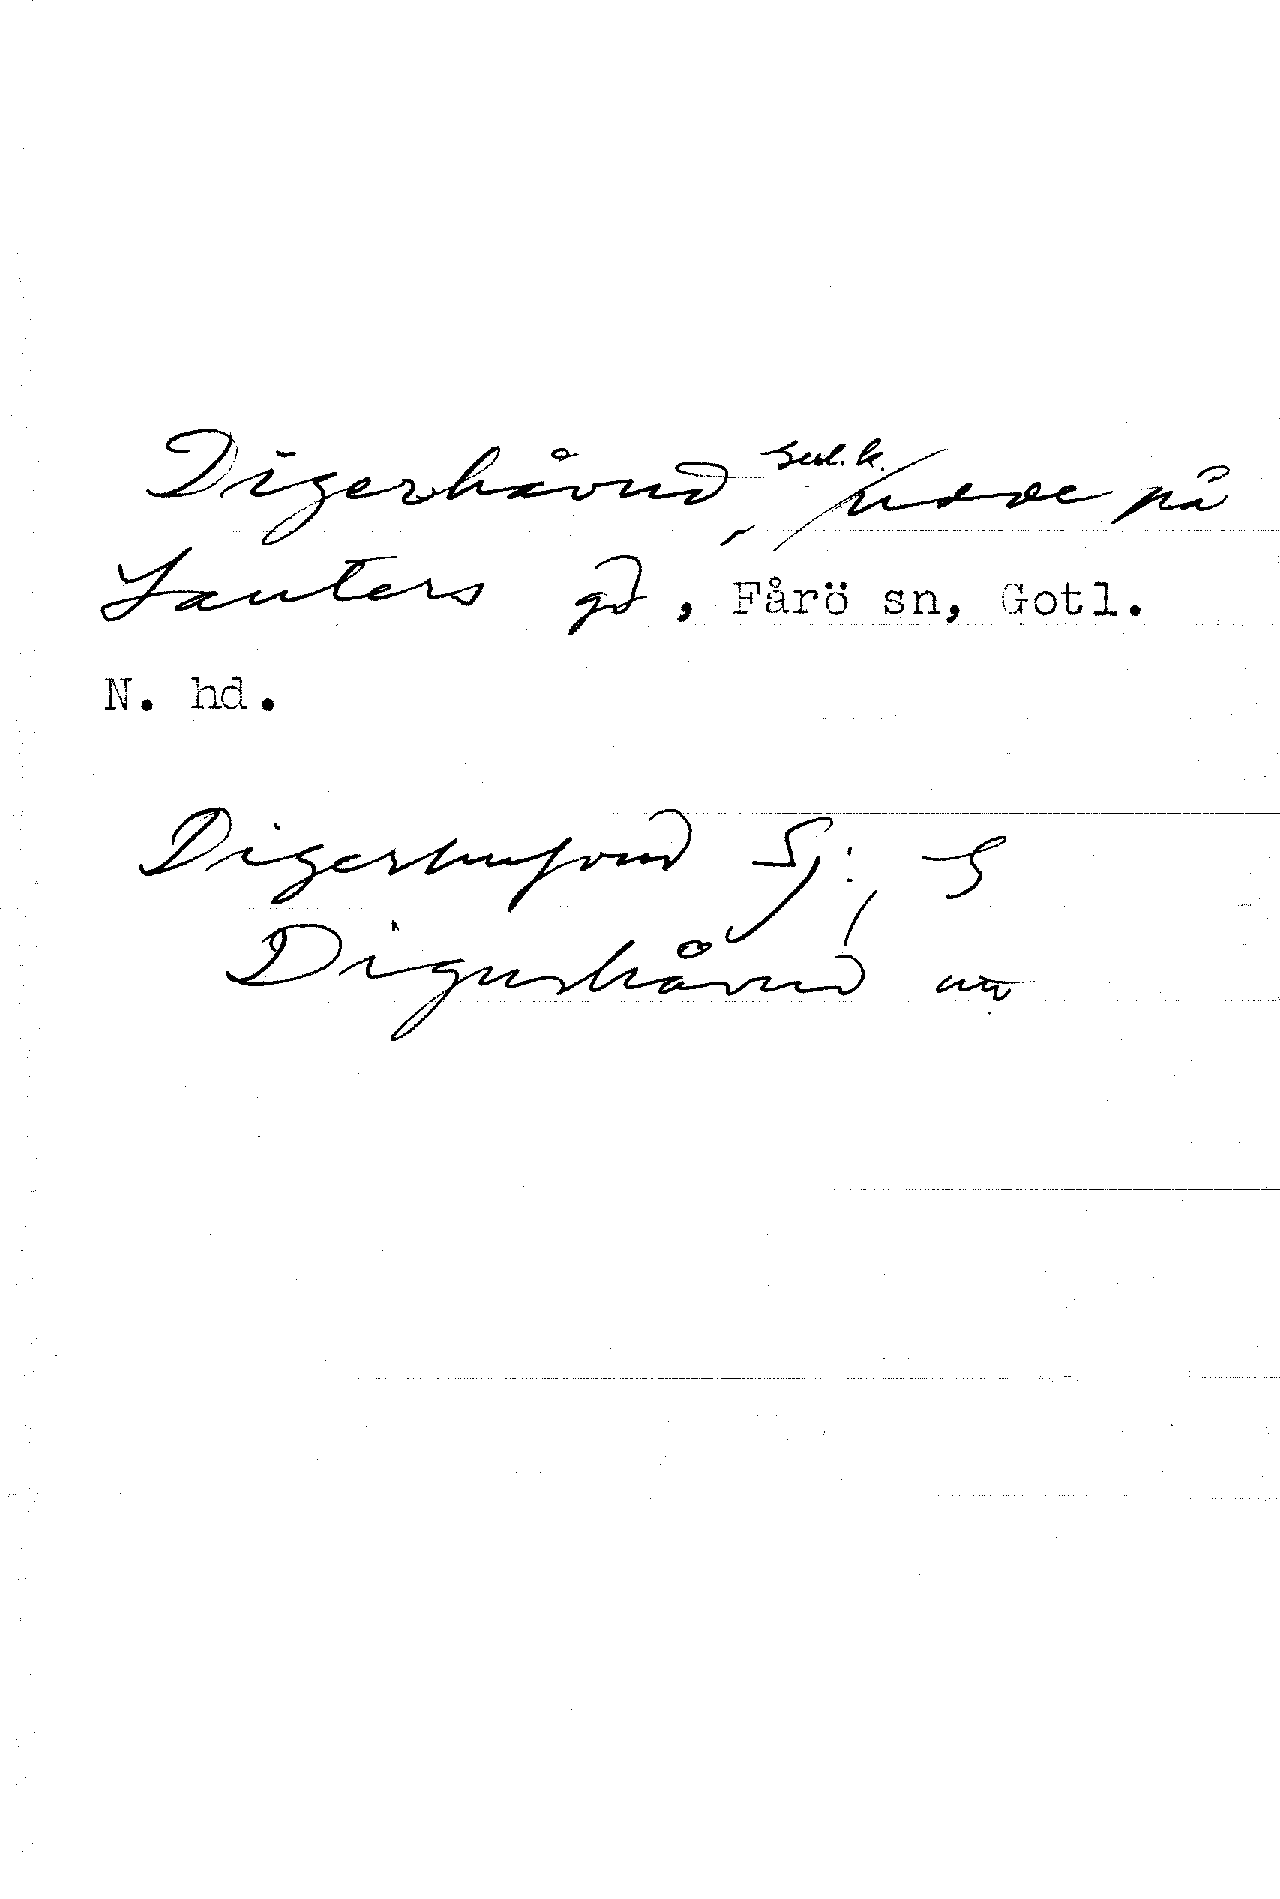 Digerhåvud, enl. k. / udde på
Lauters gd, Fårö sn, Gotl.
N. hd.
Digerhufvud Sj:, G
Digerhåvud